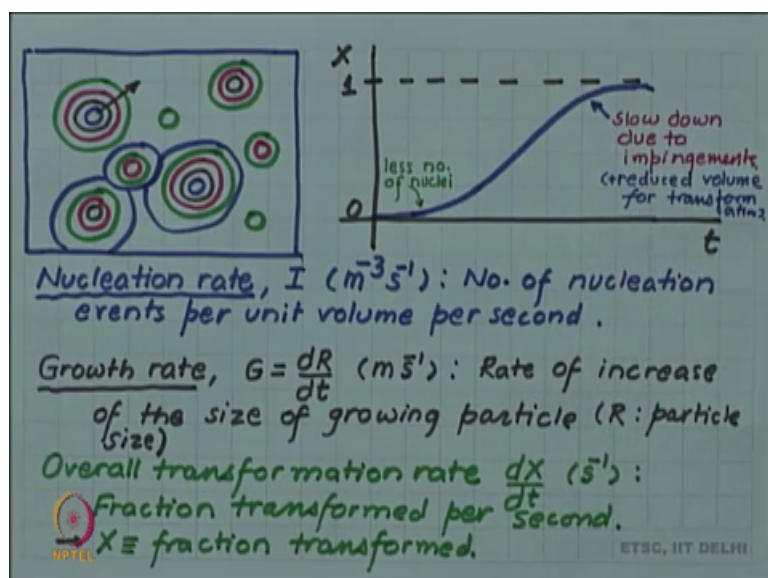 X
1
0
t
less no.
of nuclei
slow down
due to
impingements
(+reduced volume
for transform
Nucleation rate, I (m⁻³s⁻¹) : No. of nucleation
events per unit volume per second.
Growth rate, G = dR/dt (m s⁻¹) : Rate of increase
of the size of growing particle (R : particle
size)
Overall transformation rate dX/dt (s⁻¹) :
Fraction transformed per second.
X ≡ fraction transformed.
NPTEL
ETSC, IIT DELHI